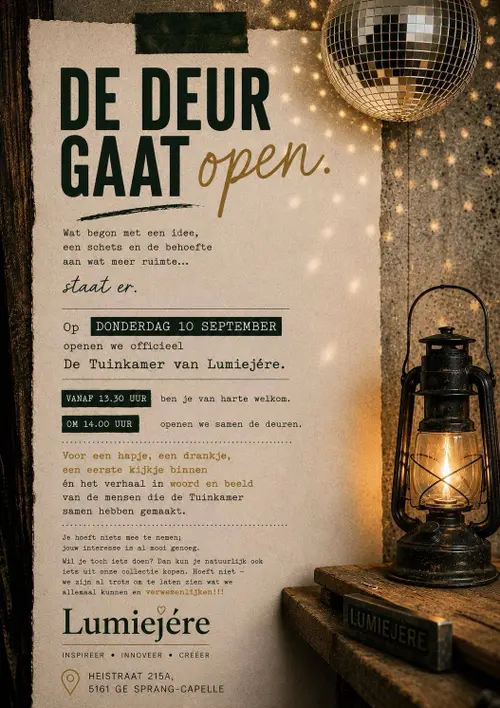 DE DEUR
GAAT open.
Wat begon met een idee,
een schets en de behoefte
aan wat meer ruimte...
staat er.
Op DONDERDAG 10 SEPTEMBER
openen we officieel
De Tuinkamer van Lumiejére.
VANAF 13.30 UUR ben je van harte welkom.
OM 14.00 UUR openen we samen de deuren.
Voor een hapje, een drankje,
een eerste kijkje binnen
én het verhaal in woord en beeld
van de mensen die de Tuinkamer
samen hebben gemaakt.
Je hoeft niets mee te nemen;
jouw interesse is al mooi genoeg.
Wil je toch iets doen? Dan kun je natuurlijk ook
iets uit onze collectie kopen. Hoeft niet –
we zijn al trots om te laten zien wat we
allemaal kunnen en verwemenlijken!!!
Lumiejére
INSPIREER • INNOVEER • CREËER
HEISTRAAT 215A,
5161 GE SPRANG-CAPELLE
LUMIEJERE